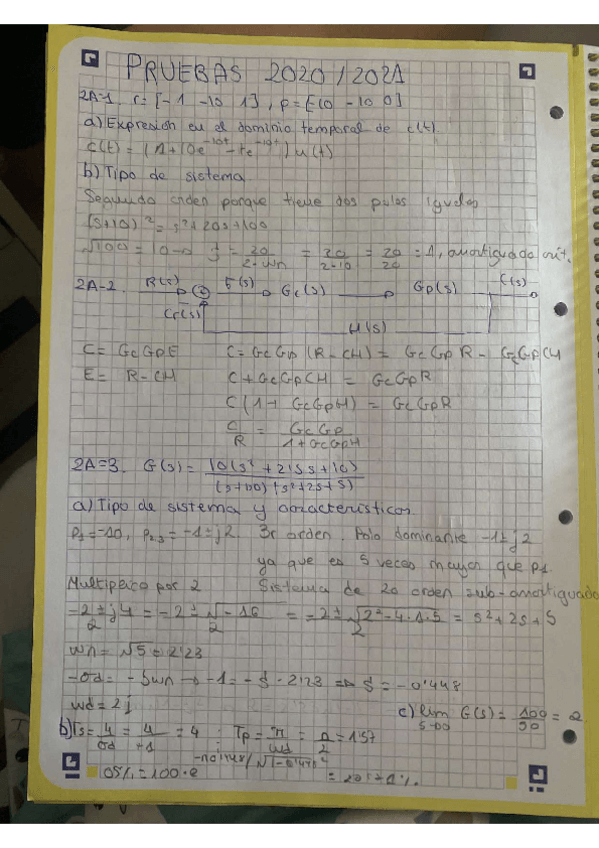 PRUEBAS 2020/2021
2A-1. r=[-1 -10 1], p=[-10 -10 0]
a) Expresión en el dominio temporal de c(t).
c(t) = (1+10e^-10t - te^-10t) u(t)
b) Tipo de sistema
Segundo orden porque tiene dos polos iguales
(s+10)² = s²+20s+100
√100 = 10 → ξ = 20/2·wn = 20/2·10 = 20/20 = 1, amortiguado crít.
2A-2. R(s) E(s) Gc(s) Gp(s) C(s)
H(s)
C = GcGpE C = GcGp (R-CH) = GcGpR - GcGpCH
E = R-CH C+GcGpCH = GcGpR
C(1+GcGpH) = GcGpR
C/R = GcGp/1+GcGpH
2A=3. G(s) = 10(s²+2'5s+10)/(s+10)(s²+2s+5)
a) Tipo de sistema y características.
P1=-10, P2,3=-1±j2. 3r orden. Polo dominante -1±j2
ya que es 5 veces mayor que P1.
Multiplico por 2 Sistema de 2o orden sub-amortiguado
-2±j4/2 = -2±√-16/2 = -2±√2²-4·1·5 = s²+2s+5
wn = √5 = 2'23
-σd = -ξwn → -1 = -ξ·2'23 ⇒ ξ = -0'448
wd = 2j
c) lim s→0 G(s) = 100/50 = 2
b) Ts = 4/σd = 4/+1 = 4 ; Tp = π/wd = π/2 = 1'57
OS% = 100·e